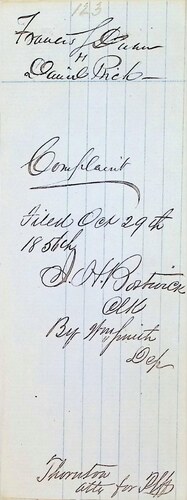 123
Francis J Dunn
vs
Daniel Rich
Complaint
Filed Oct 29th
1856
J. H. Bostwick
Clk
By Wm Smith
Dep
Thornton
atty for Plff